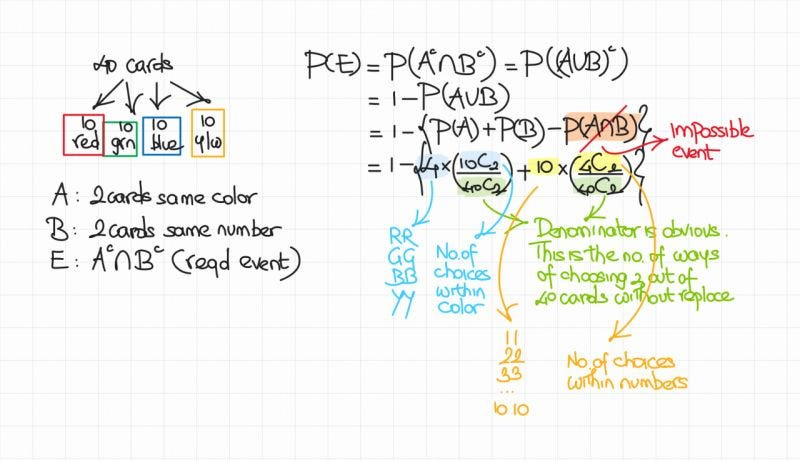 40 cards
10 red
10 grn
10 blue
10 ylw
A : 2 cards same color
B : 2 cards same number
E : Aᶜ∩Bᶜ (reqd event)
P(E) = P(Aᶜ∩Bᶜ) = P((A∪B)ᶜ)
= 1 - P(A∪B)
= 1 - {P(A) + P(B) - P(A∩B)}
Impossible
event
= 1 - {4 × (10C2 / 40C2) + 10 × (4C2 / 40C2)}
RR
GG
BB
YY
No. of
choices
within
color
Denominator is obvious.
This is the no. of ways
of choosing 2 out of
40 cards without replace
11
22
33
...
10 10
No. of choices
within numbers